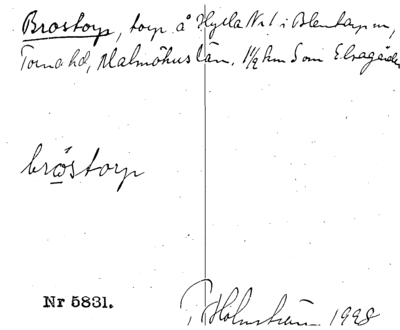 Brostorp, torp å Hylla Nr 1 i Blentarp sn,
Torna hd, Malmöhus län. 1½ km S om Elvagården
bröstorp
Nr 5831.
Holmström 1928